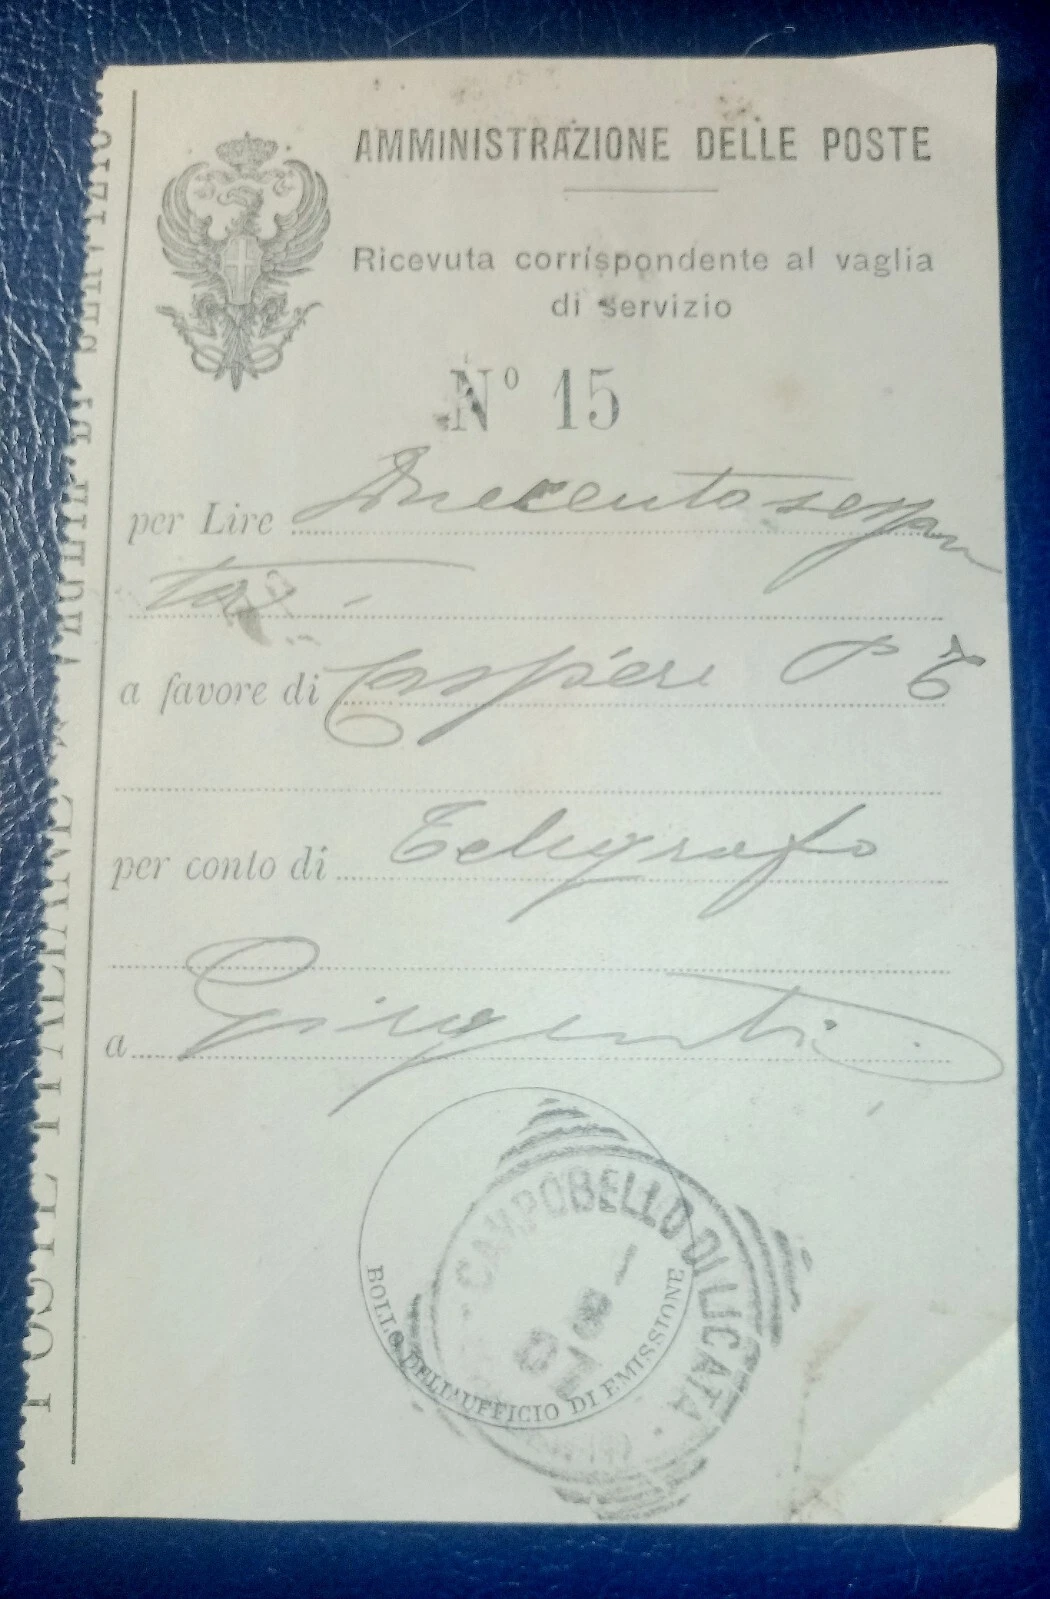 AMMINISTRAZIONE DELLE POSTE
Ricevuta corrispondente al vaglia
di servizio
N° 15
per Lire Duecentosessan
ta
a favore di Cassiere P T
per conto di Telegrafo
a Girgenti
CAMPOBELLO DI LICATA
BOLLO DELL'UFFICIO DI EMISSIONE
POSTE ITALIANE VAGLIA DI SERVIZIO